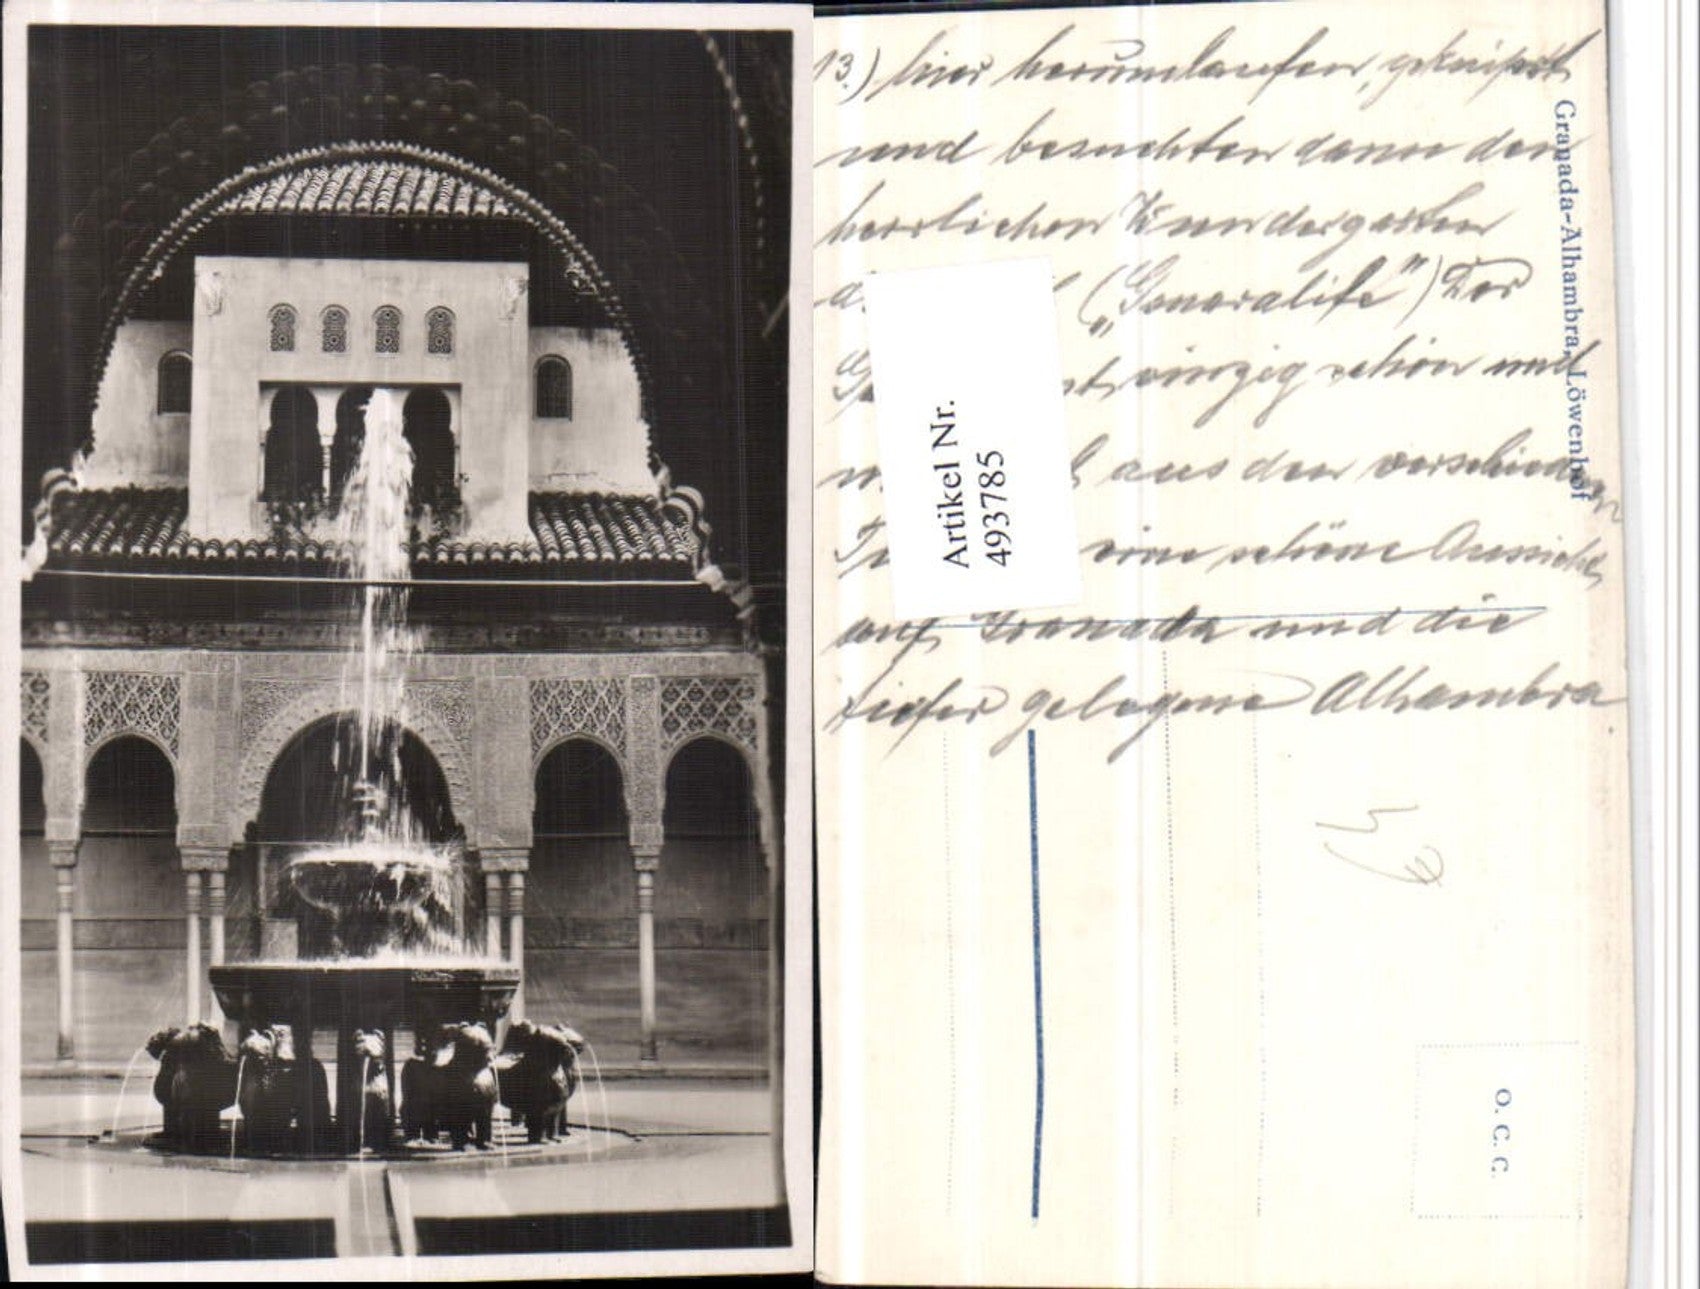 13.) hier herumlaufen, geknipst
und besuchten dann den
herrlichen Wundergarten
("Generalife") Der
einzig schön und
aus den verschieden
eine schöne Aussicht
auf Granada und die
tiefer gelegene Alhambra.
Artikel Nr.
493785
Granada-Alhambra, Löwenhof
O. C. C.